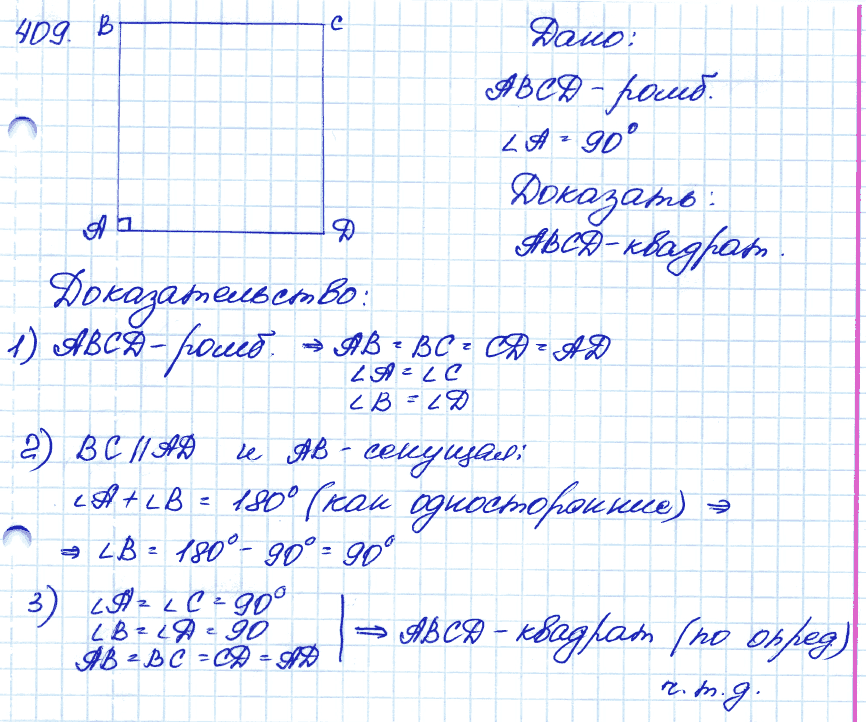 409.
B
C
A
D
Дано:
ABCD - ромб.
∠A = 90°
Доказать:
ABCD - квадрат.
Доказательство:
1) ABCD - ромб. ⇒ AB = BC = CD = AD
∠A = ∠C
∠B = ∠D
2) BC || AD и AB - секущая:
∠A + ∠B = 180° (как односторонние) ⇒
⇒ ∠B = 180° - 90° = 90°
3) ∠A = ∠C = 90°
∠B = ∠D = 90
AB = BC = CD = AD
⇒ ABCD - квадрат (по опред)
ч.т.д.